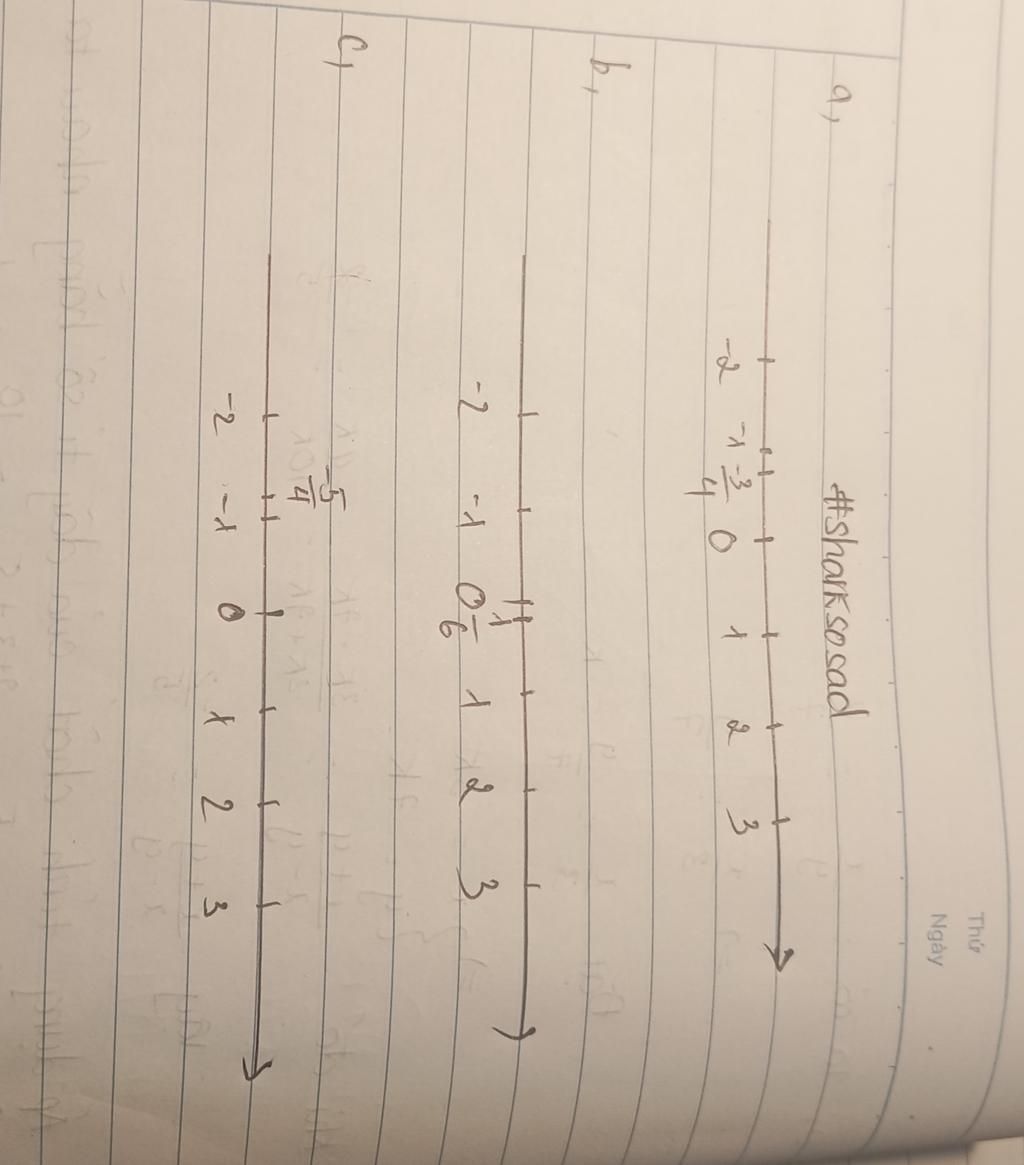 Thứ
Ngày
#sharksosad
a,
-2 -1 -3/4 0 1 2 3
b,
-2 -1 0 1/6 1 2 3
c,
-5/4
-2 -1 0 1 2 3